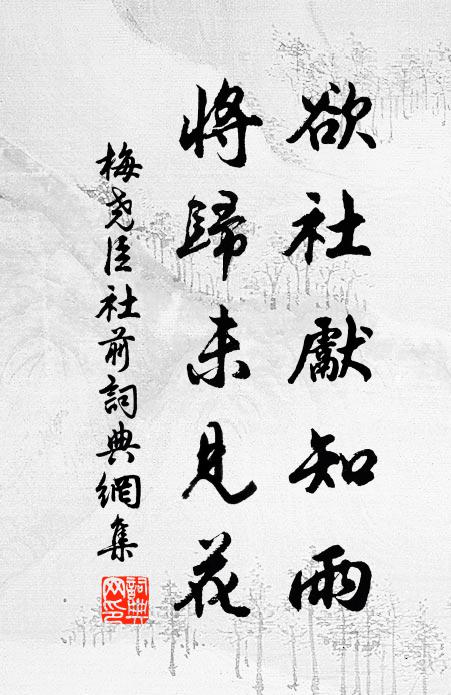 欲社獻知雨
將歸未見花
梅堯臣社前詞典網集